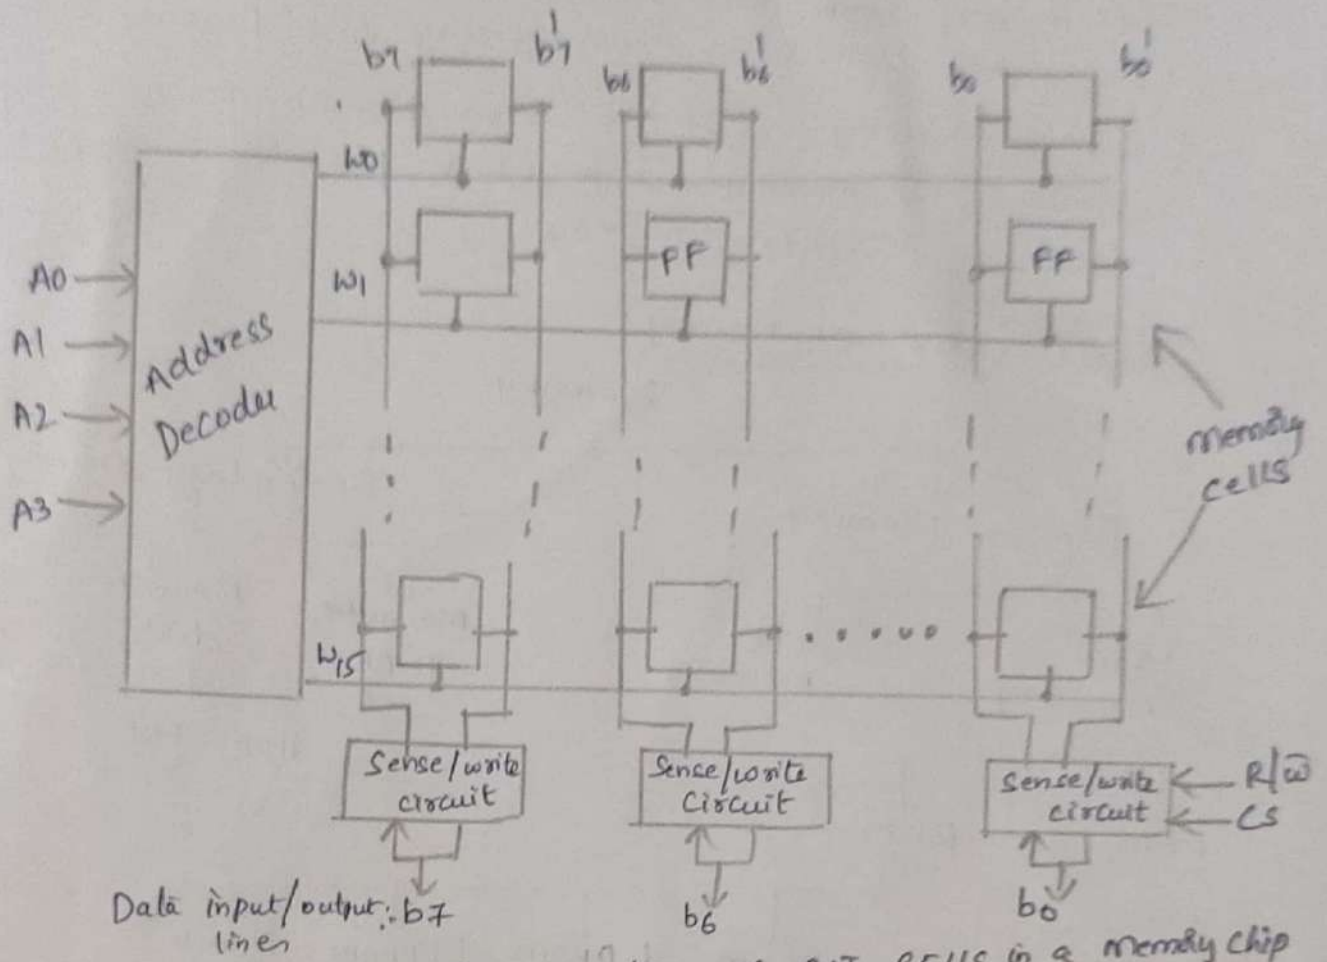 b7 b'7 b6 b'6 b0 b0'
W0
A0
W1
FF FF
A1
Address
Decoder
A2
memory
cells
A3
W15
Sense/write
circuit
Sense/write
circuit
Sense/write
circuit
R/w̅
CS
Data input/output: b7
lines
b6
b0
cells in a memory chip